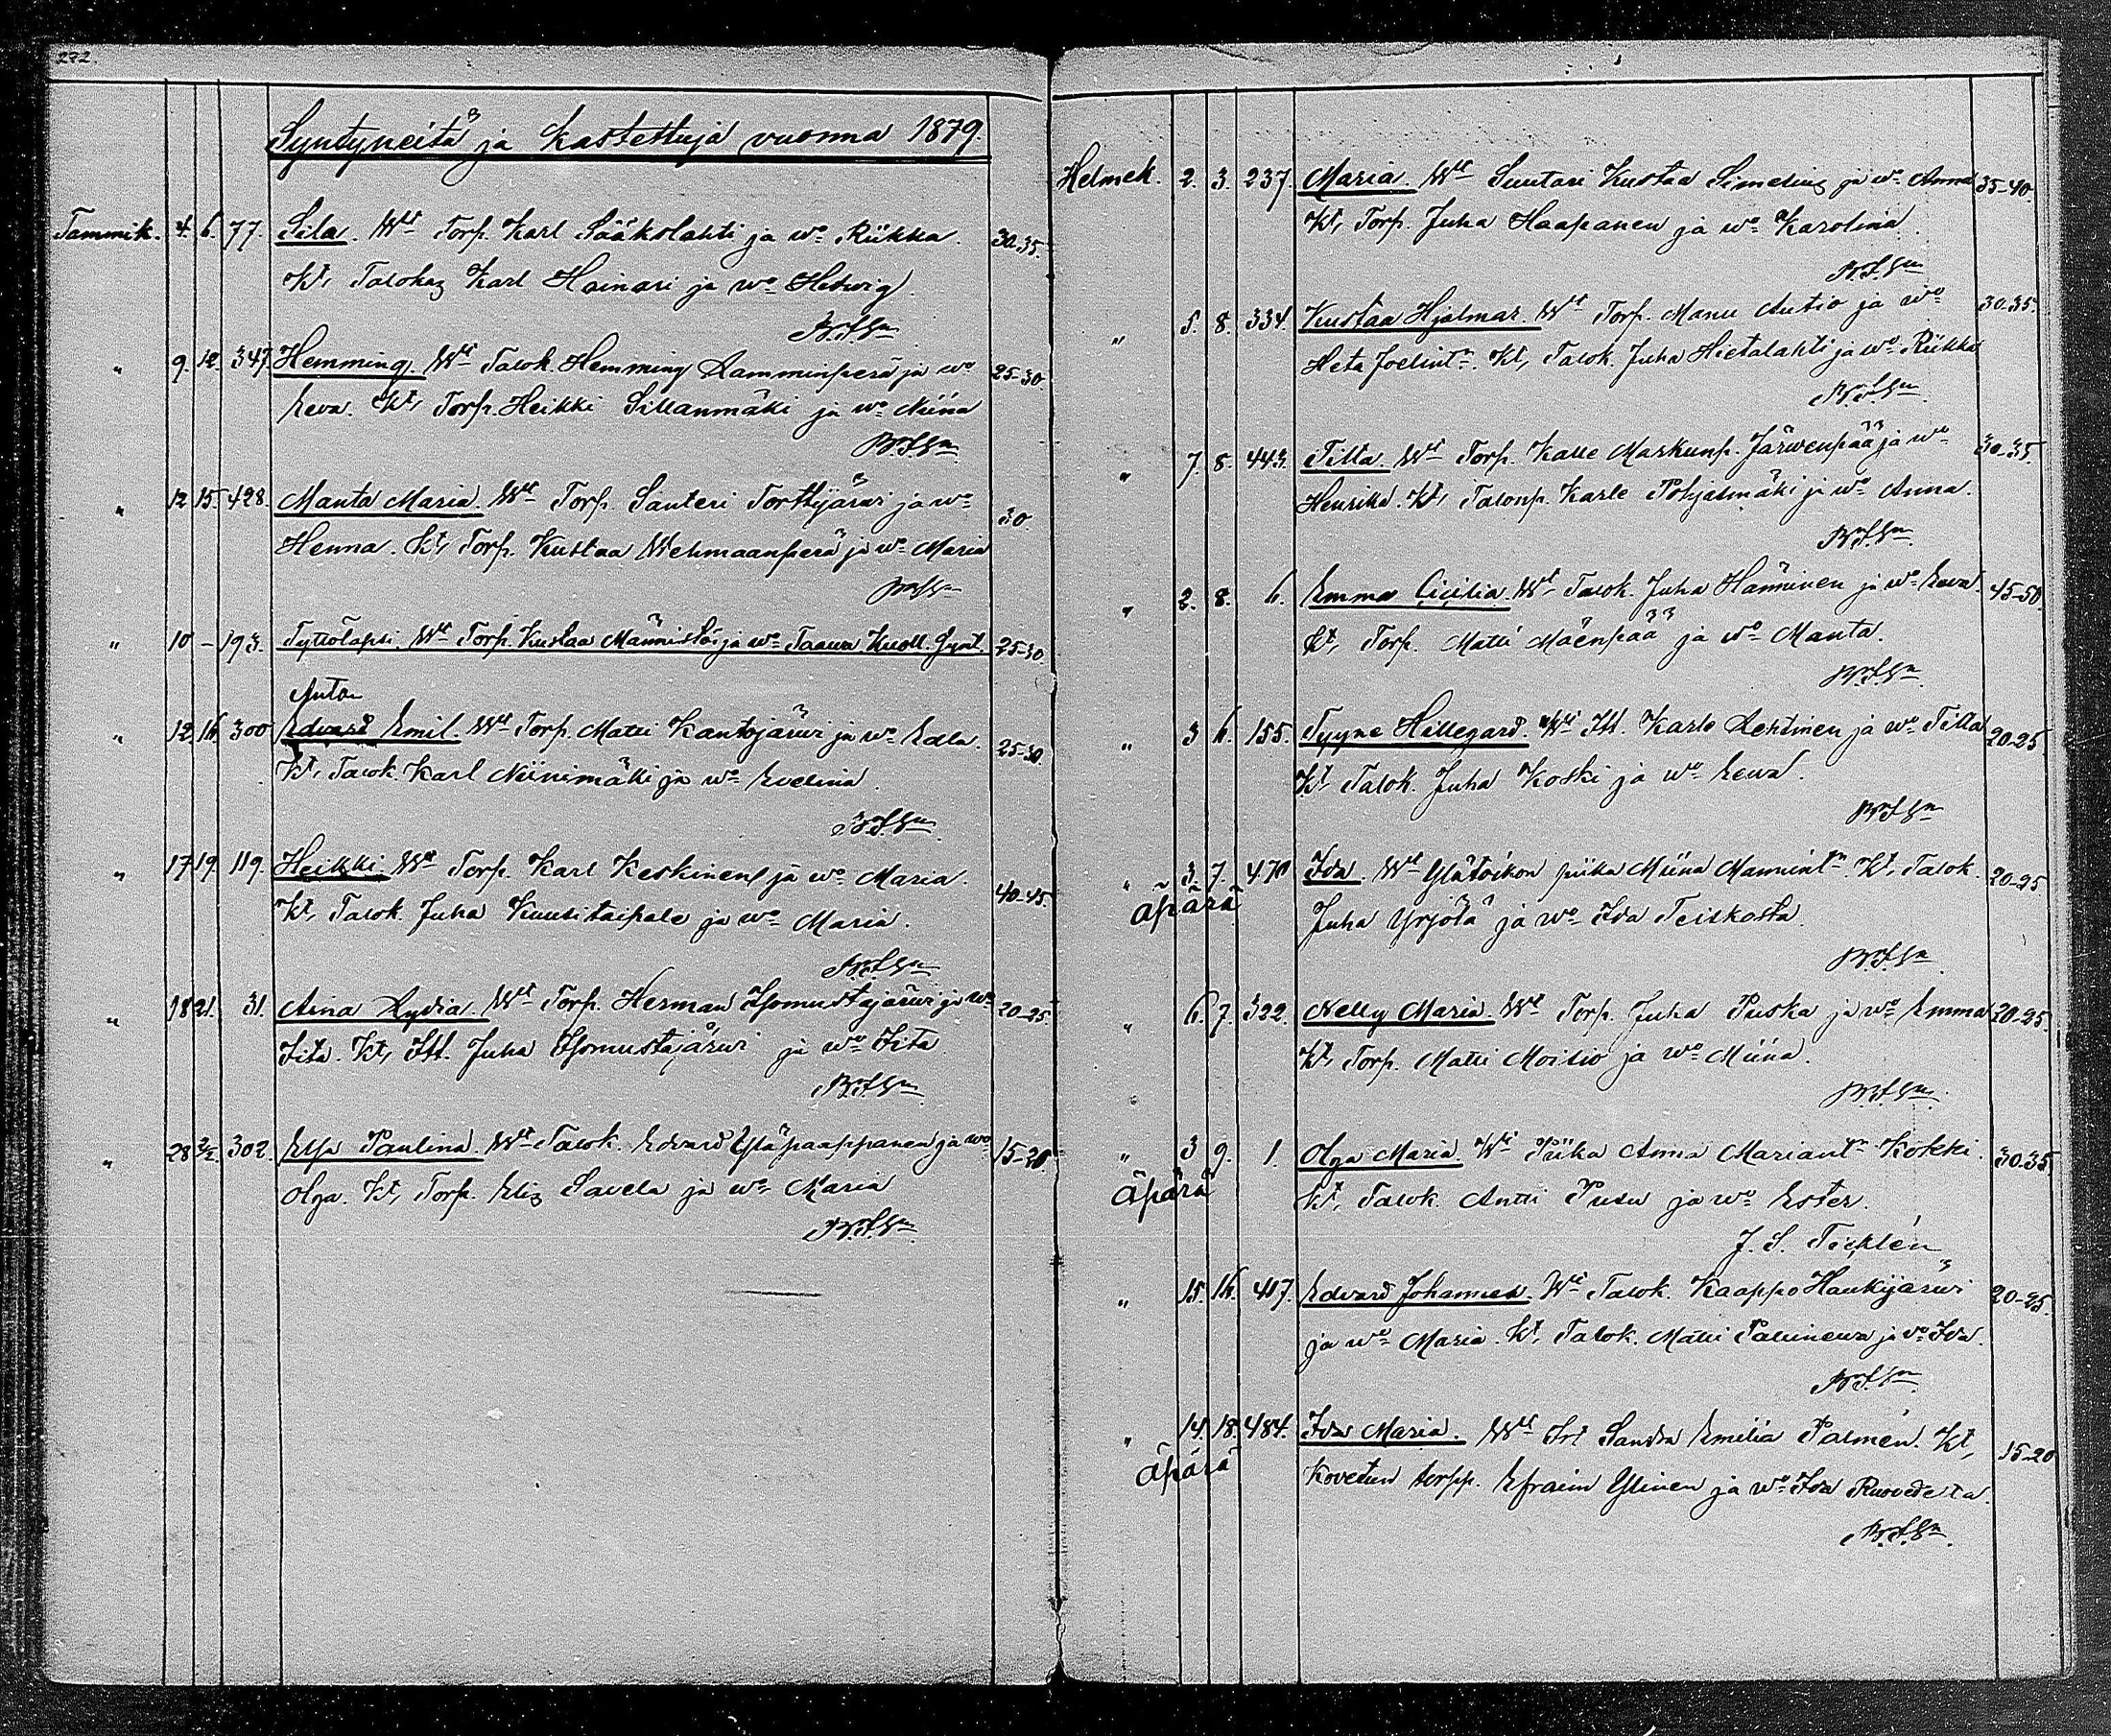 272.
Syntyneitä ja kastettuja vuonna 1879.
Tammik. 4. 6. 77. Sila. Wt Torp. Karl Sääkslahti ja wo Riikka. 30-35.
Kt, Talokas Karl Hainari ja wo Hetwig.
" 9. 12. 347. Hemming. Wt Talok. Hemming Lamminperä ja wo 25-30.
Eeva. Kt, Torp. Heikki Sillanmäki ja wo Miina
" 12 15. 428. Manta Maria. Wt Torp. Santeri Torttijärwi ja wo 30.
Henna. Kt, Torp. Kustaa Wehmaanperä ja wo Maria
" 10 – 193. Tyttölapsi. Wt Torp. Kustaa Männistö ja wo Taawa Kuoll. synt. 25-30.
Anton
" 12. 16. 300 Edvard Emil. Wt Torp. Matti Kantojärwi ja wo Edla. 25-30.
Kt, Talok. Karl Niinimäki ja wo Evelina.
" 17. 19. 119. Heikki. Wt Torp. Karl Keskinen ja wo Maria. 40-45.
Kt, Talok. Juha Kuusitaipale ja wo Maria.
" 18 21. 31. Aina Lydia. Wt Torp. Herman Isomustajärwi ja wo 20-25.
Fita. Kt, Itl. Juha Isomustajärwi ja wo Fita
" 28 2/2. 302. Elsa Paulina. Wt Talok. Edvard Yläpaappanen ja wo 15-20
Olga. Kt, Torp. Elis Savela ja wo Maria
Helmek. 2. 3. 237. Maria. Wt Suutari Kustaa Simelius ja wo Anna 35-40.
Kt, Torp. Juha Haapanen ja wo Karolina.
" 5. 8. 334. Kustaa Hjalmar. Wt Torp. Manu Autio ja wo 30-35.
Heta Joelintr. Kt, Talok. Juha Hietalahti ja wo Riikka
" 7. 8. 443. Tilta. Wt Torp. Kalle Maskunp. Järwenpää ja wo 30-35.
Henrika. Kt, Talonp. Karle Pohjasmäki ja wo Anna.
" 2. 8. 6. Emma Cicilia. Wt Talok. Juha Hänninen ja wo Eewa. 45-50
Kt, Torp. Matti Mäenpää ja wo Manta.
" 3 6. 155. Tyyne Hillegard. Wt Itl. Karle Lehtinen ja wo Tilta 20-25
Kt Talok. Juha Koski ja wo Eewa.
" 3. 7. 470 Ida. Wt Ylätoikon piika Miina Mannintr. Kt, Talok. 20-25
äpärä Juha Yrjölä ja wo Ida Teiskosta.
" 6. 7. 322. Nelly Maria. Wt Torp. Juha Puska ja wo Emma 20-25.
Kt, Torp. Matti Moisio ja wo Miina.
" 3 9. 1. Olga Maria. Wt Piika Anna Mariantr Kokki. 30-35
äpärä Kt, Talok. Antti Pusu ja wo Ester.
J. S. Ticklén
" 15. 16. 407. Edvard Johannes. Wt Talok. Kaappo Haukijärwi 20-25.
ja wo Maria. Kt, Talok. Matti Palinewa ja wo Ida.
" 14. 18. 484. Ida Maria. Wt Irt Sandra Emilia Palmén. Kt, 15-20
äpärä Kovetun torpp. Efraim Ylinen ja wo Ida Ruovedeltä.